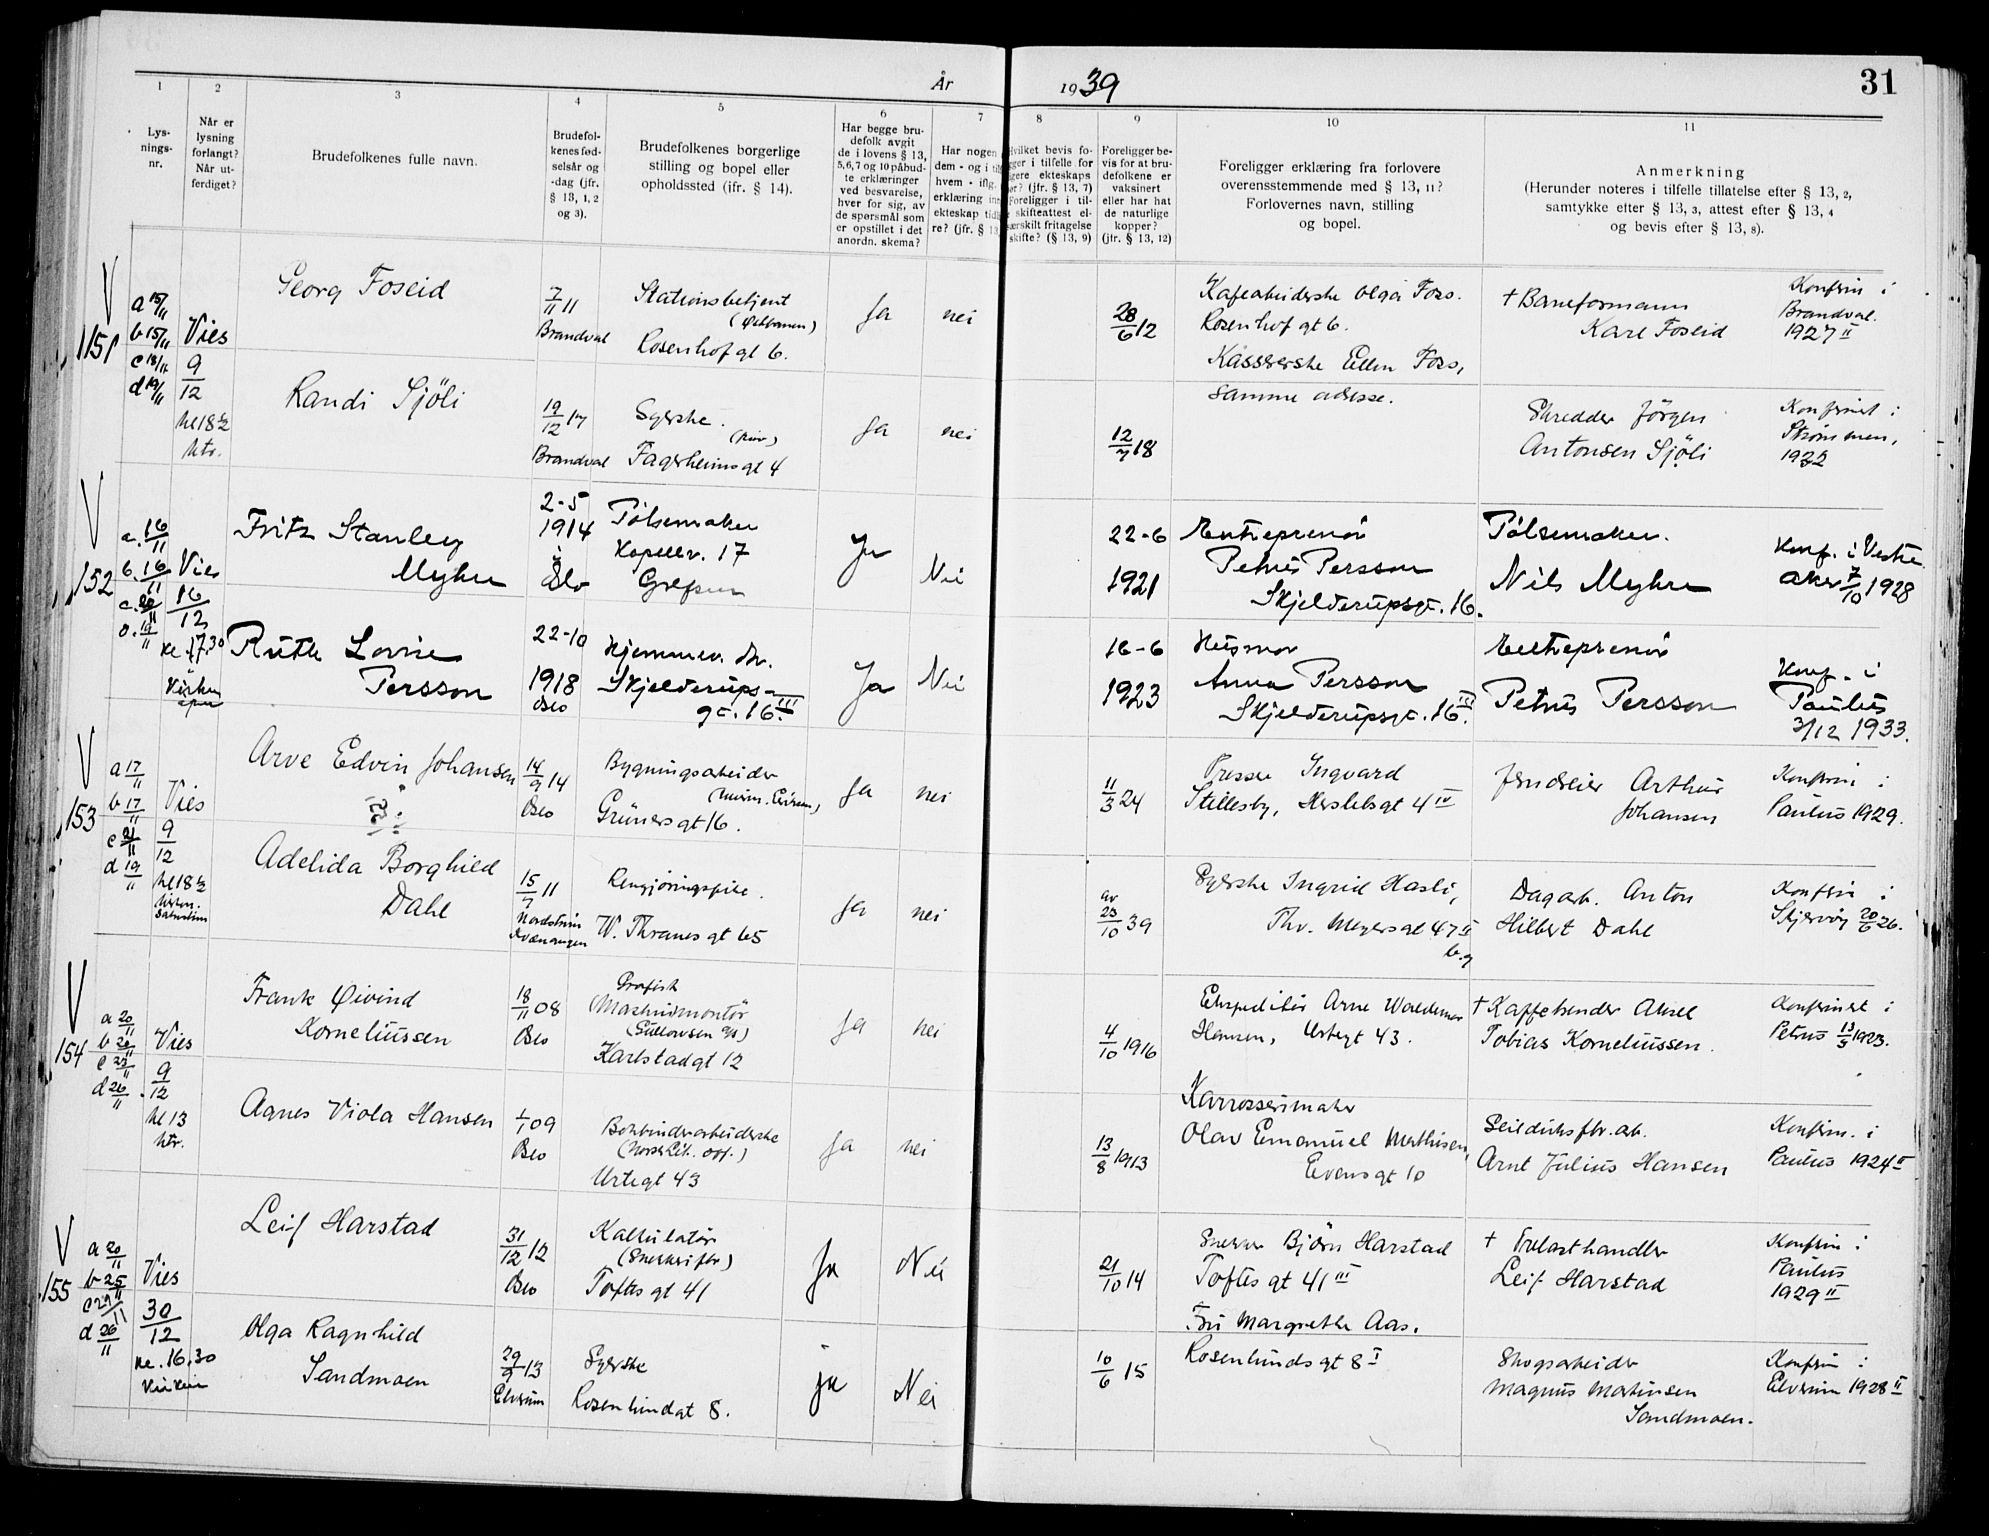 År 1939
31
1 2 3 4 5 6 7 8 9 10 11
Lys-
nings-
nr.
Når er
lysning
forlangt?
Når ut-
ferdiget?
Brudefolkenes fulle navn.
Brudefol-
kenes fød-
selsår og
-dag (jfr.
§ 13, 1, 2
og 3).
Brudefolkenes borgerlige
stilling og bopel eller
opholdssted (jfr. § 14).
Har begge bru-
defolk avgit
de i lovens § 13,
5,6,7 og 10 påbud-
te erklæringer
ved besvarelse,
hver for sig, av
de spørsmål som
er opstillet i det
anordn. skema?
Har nogen
dem - og i til
hvem - iflg.
erklæring inn
ekteskap tidl
re? (jfr. § 13,
Hvilket bevis fo-
gger i tilfelle for
igere ekteskaps
ør? (jfr. § 13, 7)
Foreligger i til-
e skifteattest el-
særskilt fritagelse
skifte? (§ 13, 9)
Foreligger be-
vis for at bru-
defolkene er
vaksinert
eller har hat
de naturlige
kopper?
(jfr. § 13, 12)
Foreligger erklæring fra forlovere
overensstemmende med § 13, 11?
Forlovernes navn, stilling
og bopel.
Anmerkning
(Herunder noteres i tilfelle tillatelse efter § 13, 2,
samtykke efter § 13, 3, attest efter § 13, 4
og bevis efter § 13, 8).
V
151
a 15/11
b 15/11
c 18/11
d 19/11
Vies
9/12
kl 18 1/2
ktr.
Georg Foseid
7/11 11
Brandval
Stationsbetjent
Rosenhof gt 6.
Ja
nei
28/6 12
Kafearbeiderske Olga Foss.
Rosenhof gt 6.
Kasserske Ellen Foss,
samme adresse.
+ Baneformann
Karl Foseid
Konfirm i
Brandval.
1927 II
Randi Sjöli
19/12 17
Brandval
Syerske.
Fagerheims gt 4
Ja
nei
12/7 18
Skredder Jörgen
Antonsen Sjöli
Konfirmert i
Strømmen,
1932
V
152
a. 16/11
b. 16/11
d. 19/11
Vies
16/12
kl. 17.30
Fritz Stanley
Myhre
2-5
1914
i
Oslo
Pølsemaker
Kapellv. 17
Grefsen
Ja
Nei
22-6
1921
Entreprenør
Petrus Persson
Skjelderupsgt. 16.
Pølsemaker.
Nils Myhre
Konf. i Vestre
Aker 7/10 1928
Ruth Lovise
Persson
22-10
1918
Oslo
Hjemmev. dtr.
Skjelderups-
gt. 16 III
Ja
Nei
16-6
1923
Husmor
Anna Persson
Skjelderupsgt. 16 III.
Entreprenør
Petrus Persson
Konf. i
Paulus
3/12 1933.
V
153
a 17/11
b 17/11
c 21/11
d 19/11
Vies
9/12
kl 18 1/2
Arve Edvin Johansen
14/9 14
Oslo
Bygningsarbeider
Grüners gt 16.
Ja
nei
11/3 24
Presser Ingvard
Stillesby, Herslebs gt 4 IV
Jernd­reier Arthur
Johansen
Konfirm i
Paulus 1929.
Adelida Borghild
Dahl
15/7 11
Kvænangen
Rengjøringspike.
W. Thranes gt 65
Ja
nei
av
23/10 39
Syerske Ingrid Hasli,
Thv. Meyers gt 47 II
Dagarb. Anton
Hilbert Dahl
Konfirm i
Skjervøy 20/6 26.
V
154
a 20/11
b 20/11
c 25/11
d 26/11
Vies
9/12
kl 13
ktr.
Frank Øivind
Korneliussen
18/11 08
Oslo
Grafisk
Maskinmontör
Karlstadgt 12
Ja
nei
4/10 1916
Ekspeditör Arne Waldemar
Hansen, Urtegt 43.
+ Kaffebrender Aksel
Tobias Korneliussen.
Konfirmert i
Petrus 13/5 1923.
Agnes Viola Hansen
1/1 09
Oslo
Bokbinderarbeiderske
(Norsk Lit. Off.)
Urtegt 43
Ja
nei
13/8 1913
Karrosserimaker
Olav Emanuel Mathisen,
Evensgt 10
Seildukfbr. arb.
Arnt Julius Hansen
Konfirm. i
Paulus 1924 II
V
155
a 20/11
b 25/11
c 29/11
d 26/11
Vies
30/12
kl. 16.30
Leif Harstad
31/12 12
Oslo
Kalkulatør
Toftes gt 41
Ja
Nei
21/10 14
Snekker Björn Harstad
Toftes gt 41 III
Fru Margrethe Aas.
Rosenlunds gt 8 I
+ Trelasthandler
Leif Harstad
Konfirm i
Paulus
1929 II
Olga Ragnhild
Sandmoen
29/9 13
Elverum
Syerske
Rosenlundgt 8.
ja
Nei
10/6 15
Skogsarbeider
Magnus Martinsen
Sandmoen.
Konfirm i
Elverum 1928 II